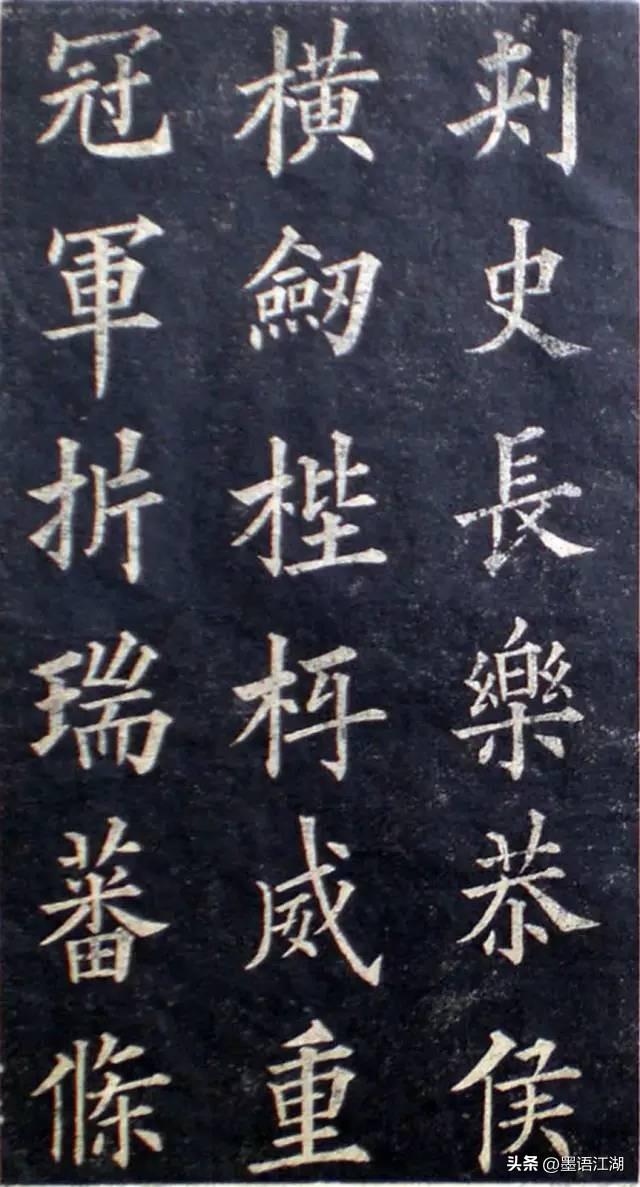 刺史長樂恭侯
橫劒梐枑威重
冠軍扸瑞蕃條
头条 @墨语江湖